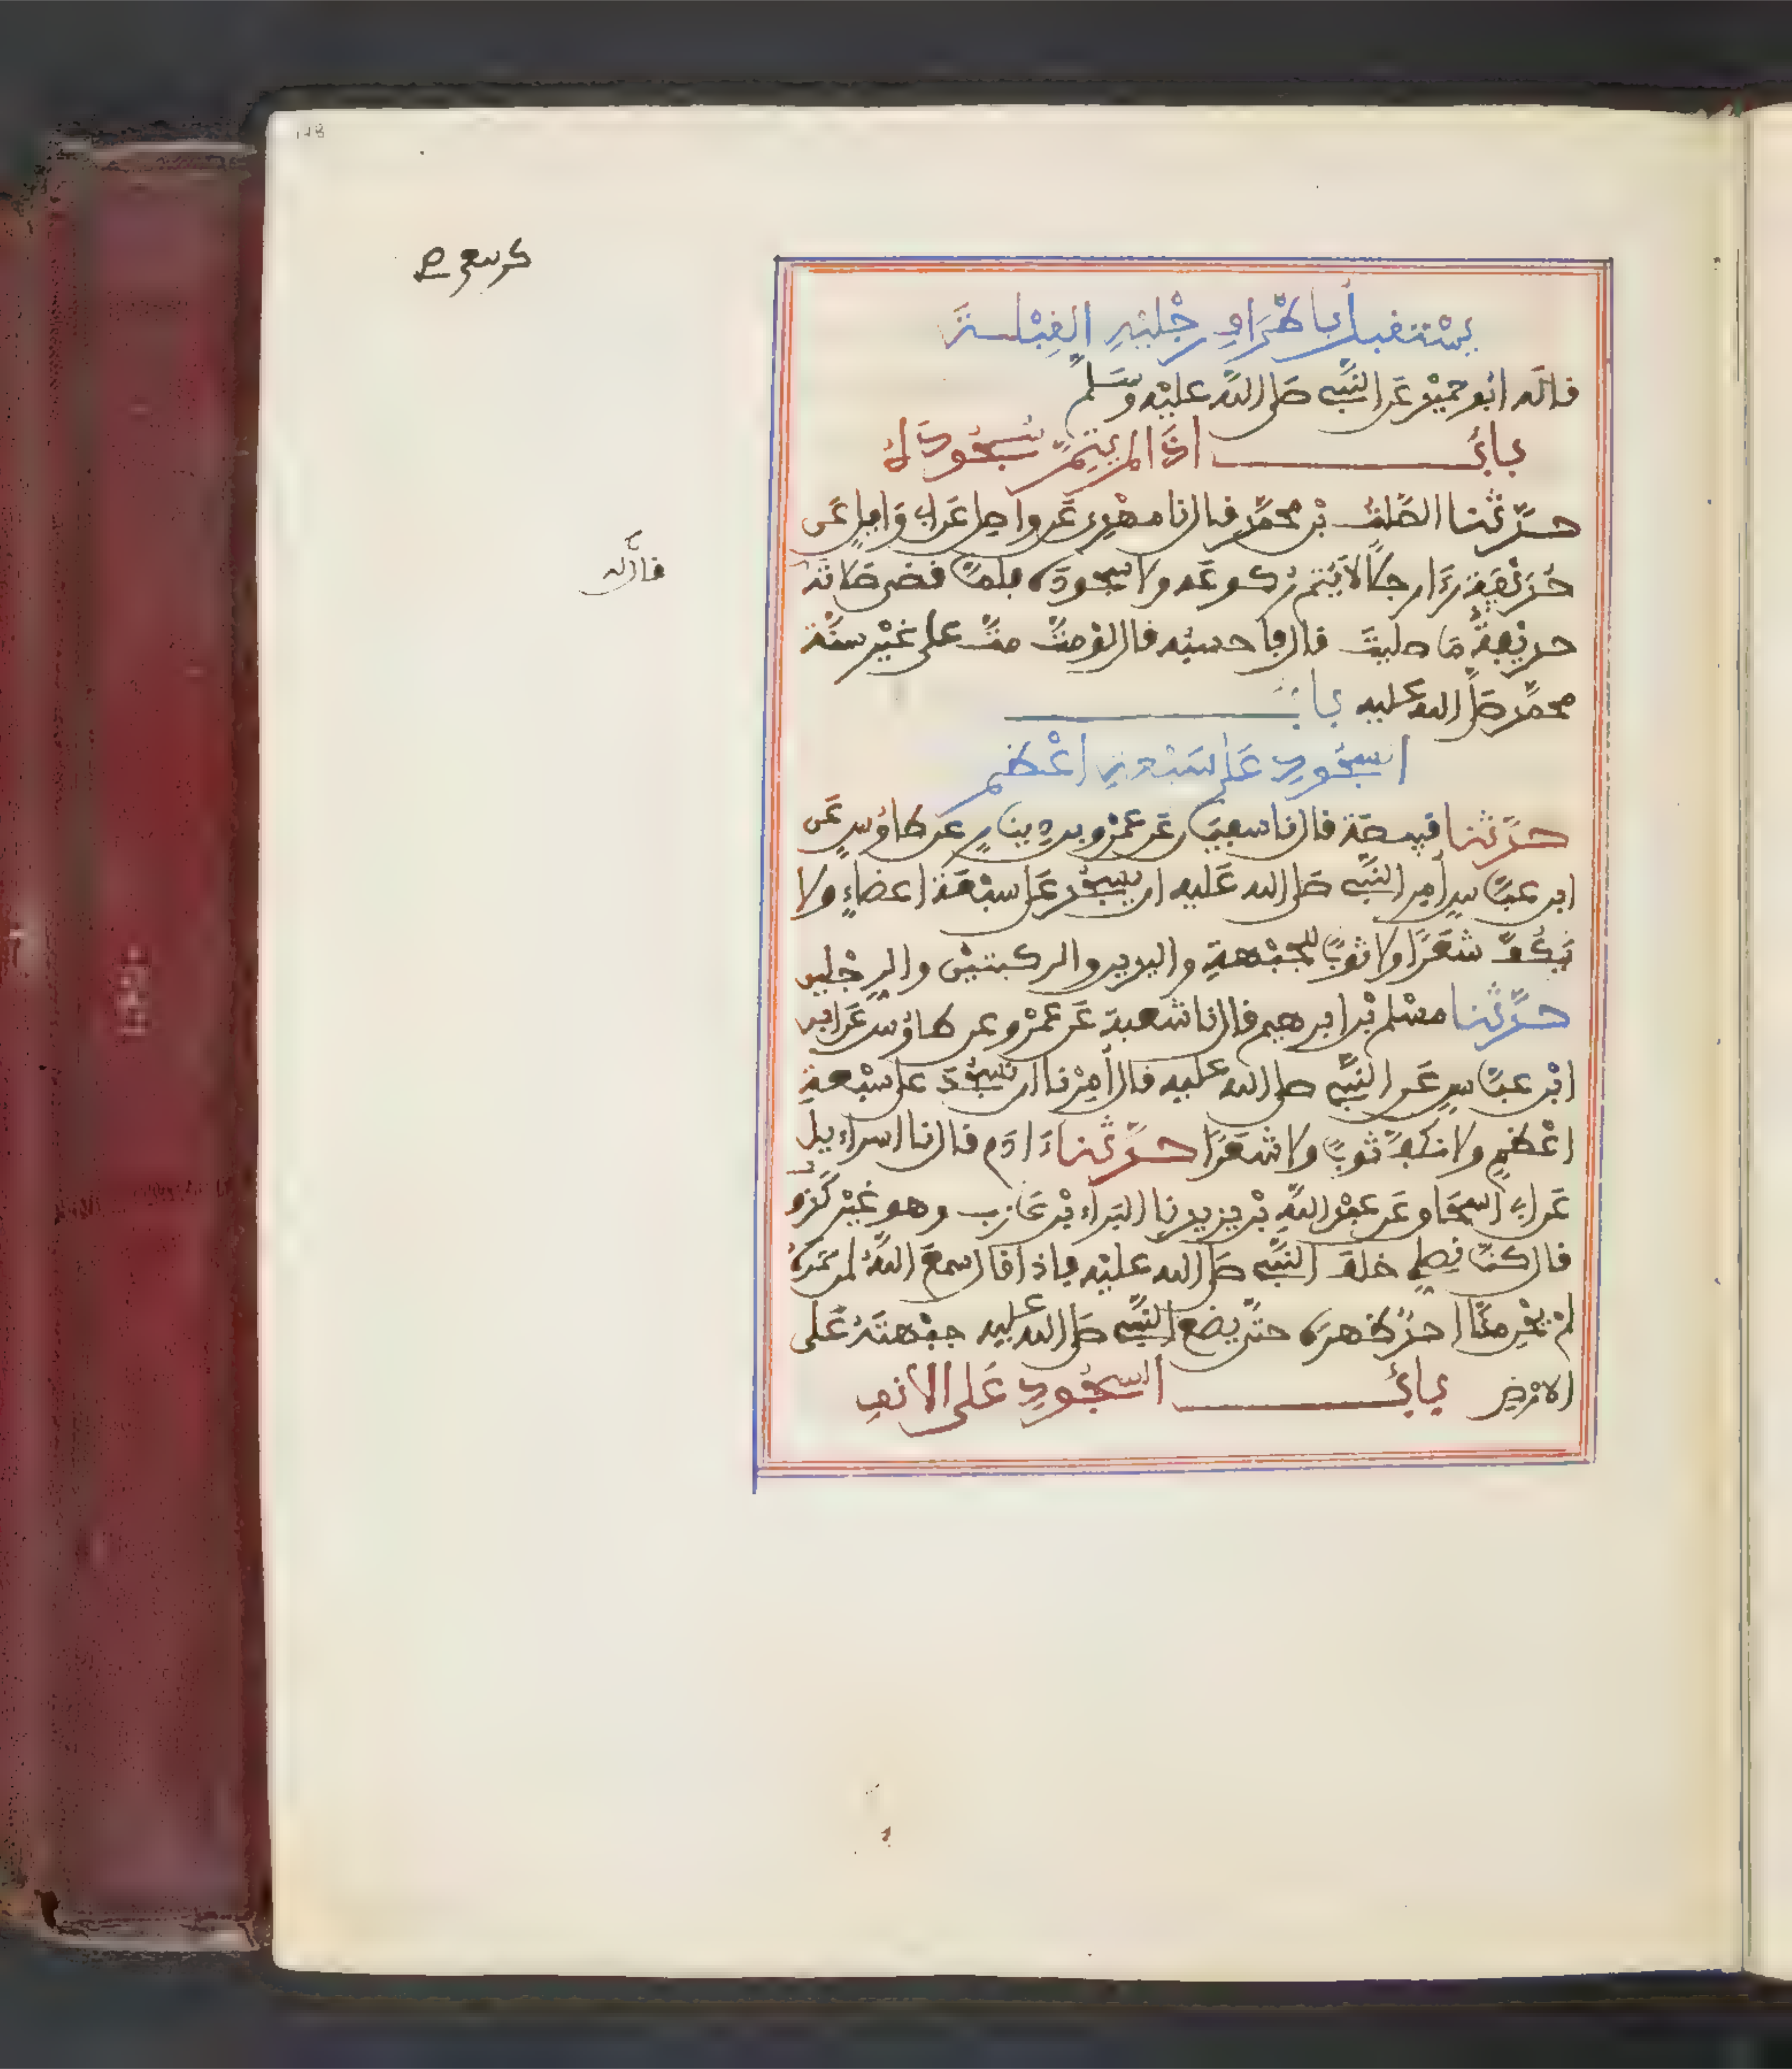 يستقبل بأطراف رجليه القبلة
قاله أبو حميد عن النبي صلى الله عليه وسلم
باب إذا لم يتم سجوده
حدثنا الصلت بن محمد قال نا مهدي عن واصل عن أبي وايل عن
حذيفة رءا رجلا لا يتم ركوعه ولا سجوده فلما قضى صلاته
حذيفة ما صليت قال وأحسبه قال لو مت مت على غير سنة
محمد صلى الله عليه باب
السجود على سبعة أعظم
حدثنا قبيصة قال نا سفيان عن عمرو بن دينار عن طاوس عن
ابن عباس أمر النبي صلى الله عليه أن يسجد على سبعة أعضاء ولا
يكف شعرا ولا ثوبا الجبهة واليدين والركبتين والرجلين
حدثنا مسلم بن إبرهيم قال نا شعبة عن عمرو عن طاوس عن ابن
ابن عباس عن النبي صلى الله عليه قال أمرنا أن نسجد على سبعة
أعظم ولا نكف ثوبا ولا شعرا حدثنا ءادم قال نا اسراءيل
عن أبي اسحاق عن عبد الله بن يزيد نا البراء بن عازب وهو غير كذوب
قال كنا نصلي خلف النبي صلى الله عليه فإذا قال سمع الله لمن حمده
لم يحن منا أحد ظهره حتى يضع النبي صلى الله عليه جبهته على
الارض باب السجود على الانف
قال له
178